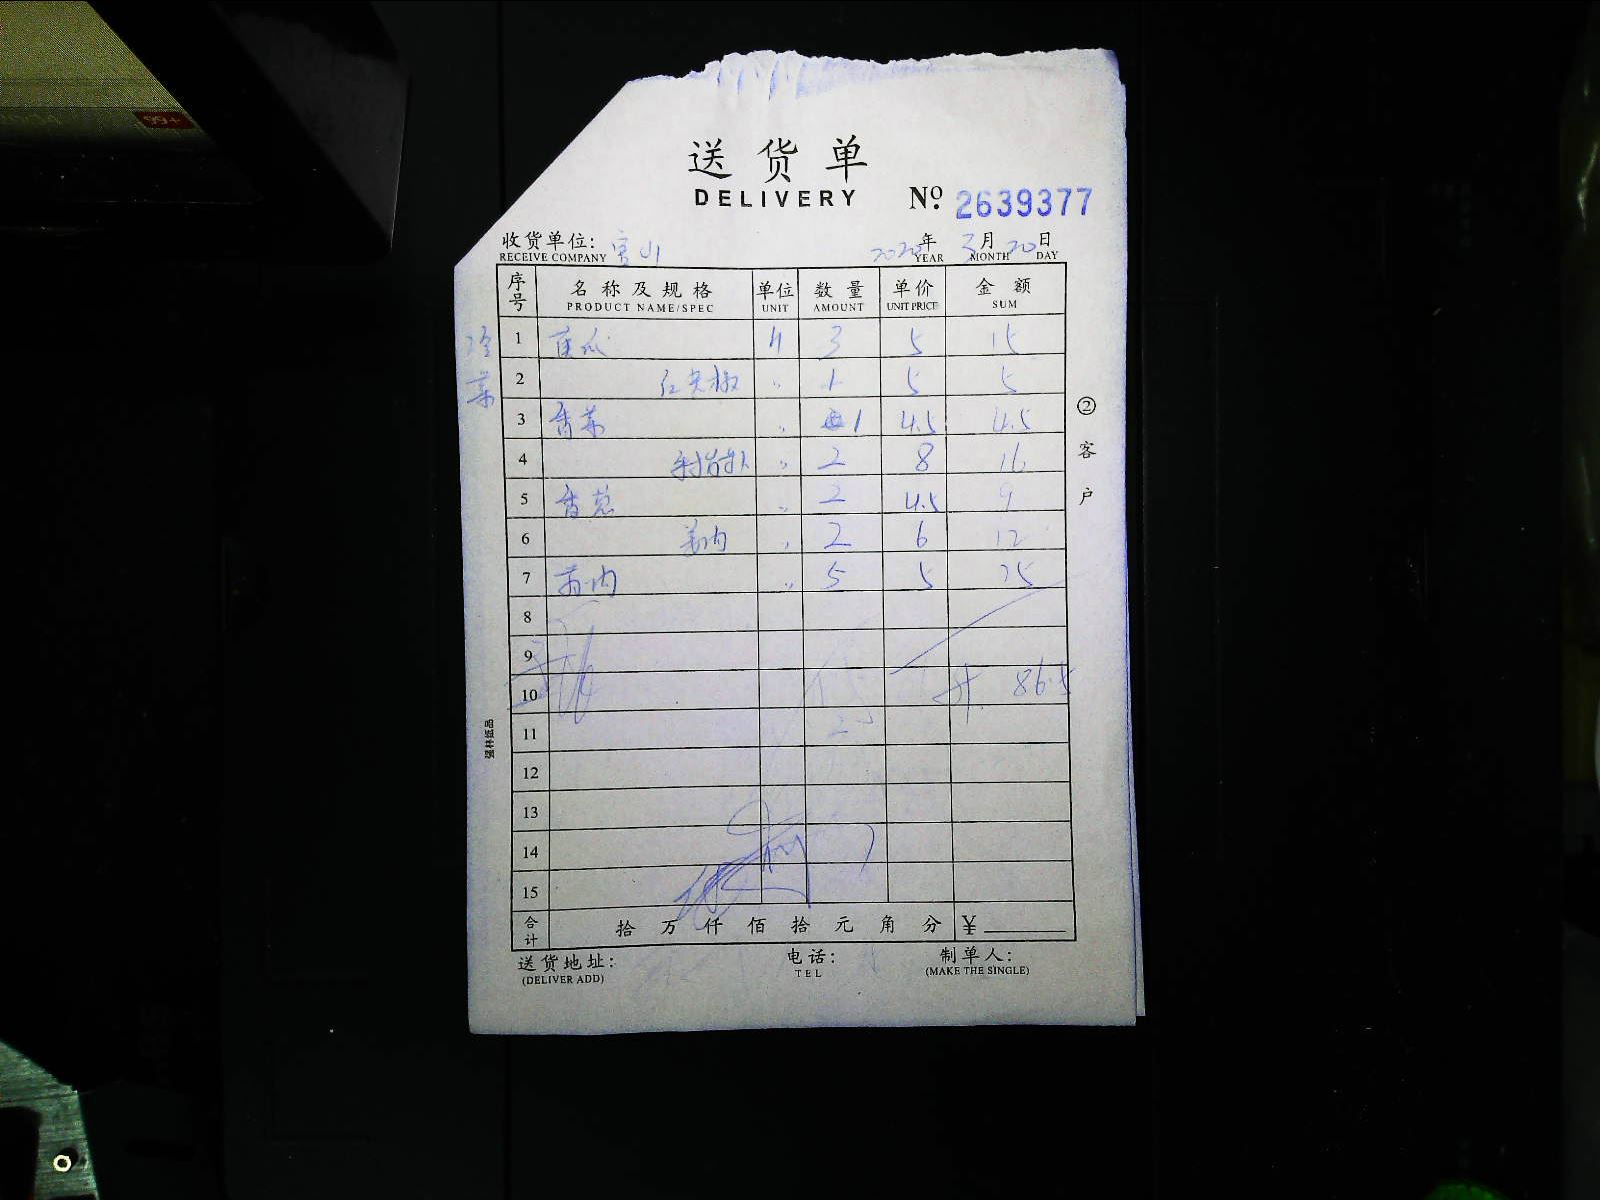 99+
送货单
DELIVERY
No. 2639377
收货单位: 富山 2020年 3月 20日
RECEIVE COMPANY YEAR MONTH DAY
序号 名称及规格 单位 数量 单价 金额
PRODUCT NAME/SPEC UNIT AMOUNT UNIT PRICE SUM
冷菜
1 黄瓜 斤 3 5 15
2 红尖椒 〃 1 5 5
3 香菜 〃 1 4.5 4.5
4 〃 2 8 16
5 香葱 〃 2 4.5 9
6 〃 2 6 12
7 〃 5 5 25
8
9
10 86.5
11
12
13
14
15
合计 拾 万 仟 佰 拾 元 角 分 ¥
送货地址: 电话: 制单人:
(DELIVER ADD) TEL (MAKE THE SINGLE)
②客户
强林纸品